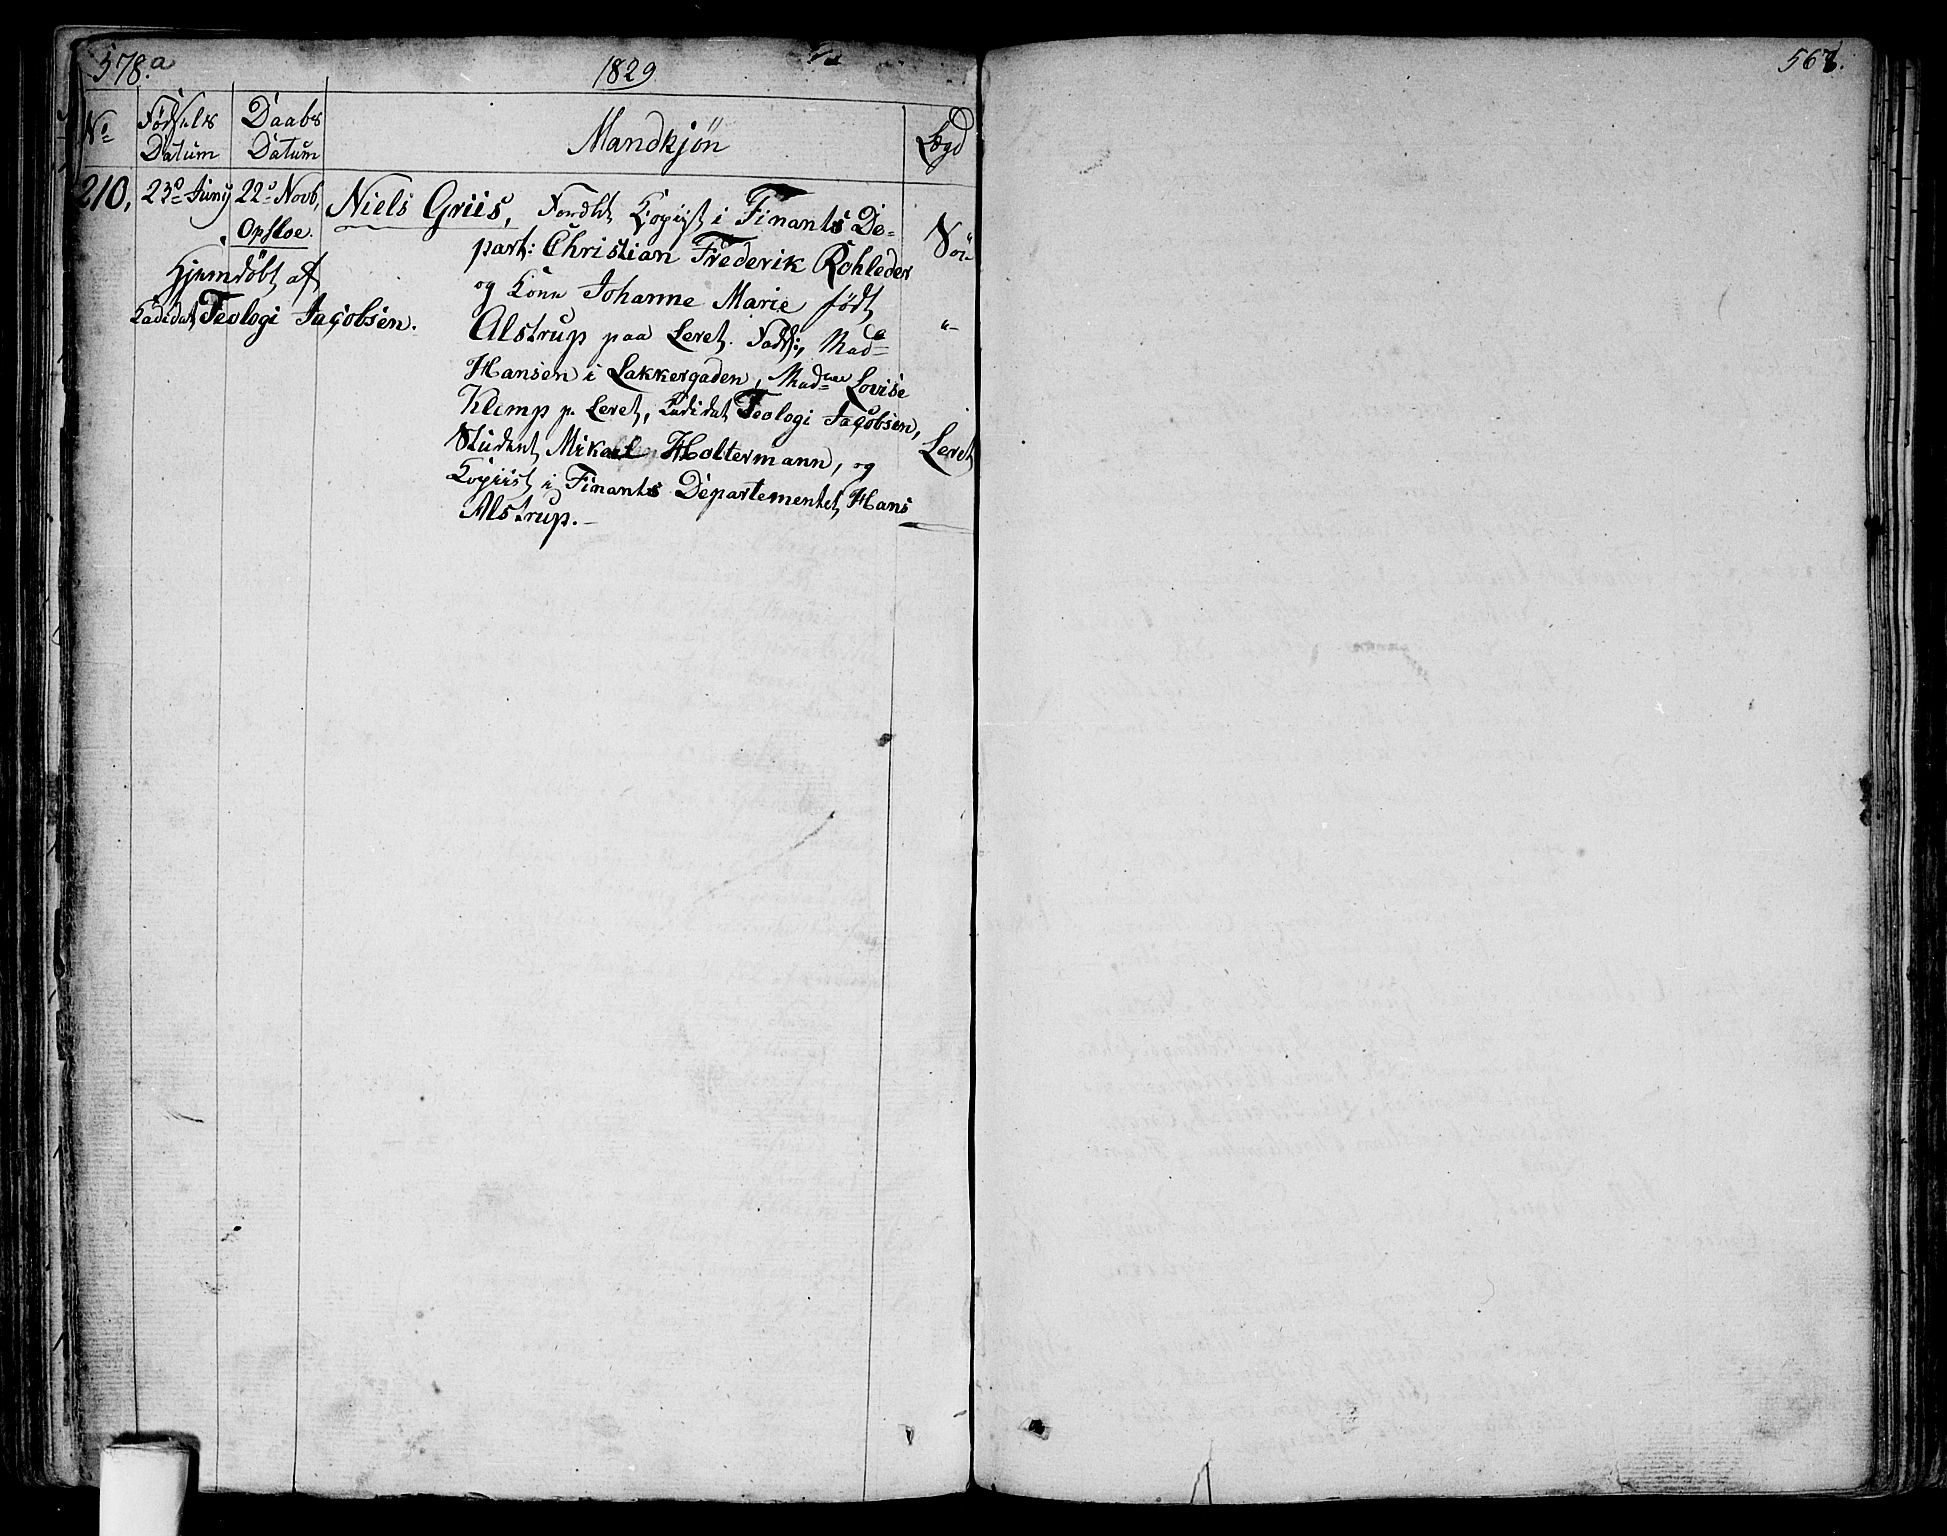 578.a
1829
567.
No
Fødsels Datum
Daabs Datum
Mandkjøn
Lægd
210.
23de Juny
22de Novb,
Opsloe.
Hjemdøbt af
Kadidat Teologi Jacobsen.
Niels Griis, Forældr Kopiist i Finants De-
part: Christian Frederik Rohleder
og Kone Johanne Marie født
Alstrup paa Leret. Fadd:, Made
Hansen i Lakkergaden, Madme Lovise
Klemp p. Leret, Kadidat Teologi Jacobsen,
Student Mikael Holtermann, og
Kopiist i Finants Departementet, Hans
Alstrup.-
"
Leret